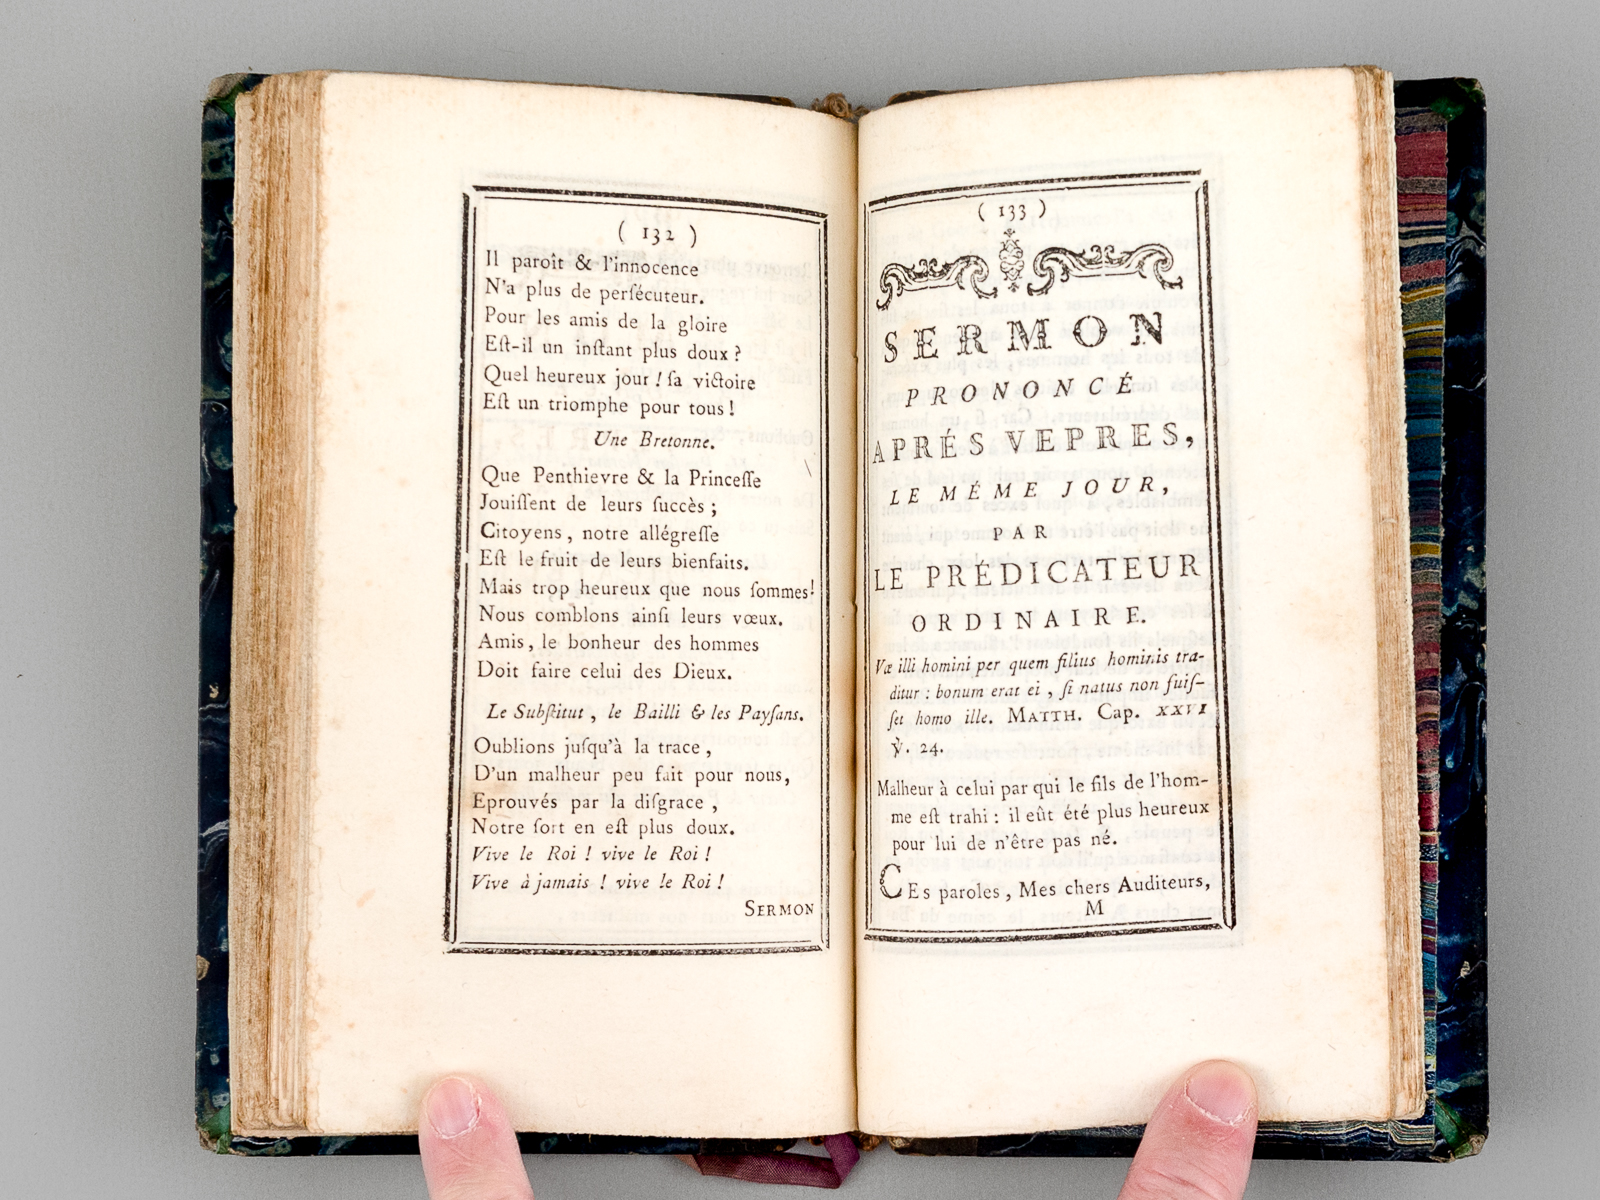 ( 132 )
Il paroît & l'innocence
N'a plus de perſécuteur.
Pour les amis de la gloire
Eſt-il un inſtant plus doux ?
Quel heureux jour ! ſa victoire
Eſt un triomphe pour tous !
Une Bretonne.
Que Penthievre & la Princeſſe
Jouiſſent de leurs ſuccès ;
Citoyens, notre allégreſſe
Eſt le fruit de leurs bienfaits.
Mais trop heureux que nous ſommes!
Nous comblons ainſi leurs vœux.
Amis, le bonheur des hommes
Doit faire celui des Dieux.
Le Subſtitut, le Bailli & les Payſans.
Oublions juſqu'à la trace,
D'un malheur peu fait pour nous,
Eprouvés par la diſgrace,
Notre ſort en eſt plus doux.
Vive le Roi ! vive le Roi !
Vive à jamais ! vive le Roi !
SERMON
( 133 )
SERMON
PRONONCÉ
APRÉS VEPRES,
LE MÉME JOUR,
PAR
LE PRÉDICATEUR
ORDINAIRE.
Væ illi homini per quem filius hominis tra-
ditur : bonum erat ei, ſi natus non fuiſ-
ſet homo ille. MATTH. Cap. XXVI
℣. 24.
Malheur à celui par qui le fils de l'hom-
me eſt trahi : il eût été plus heureux
pour lui de n'être pas né.
CEs paroles, Mes chers Auditeurs,
M